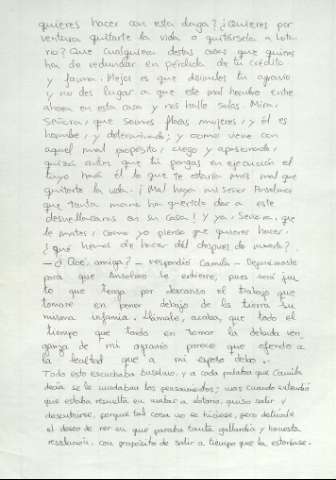 quieres hacer con esta daga? ¿Quieres por
ventura quitarte la vida o quitársela a Lota-
rio? Que cualquiera destas cosas que quieras
ha de redundar en pérdida de tu crédito
y fama. Mejor es que disimules tu agravio
y no des lugar a que este mal hombre entre
ahora en esta casa y nos halle solas. Mira,
Señora, que somos flacas mujeres, y él es
hombre, y determinado; y como viene con
aquel mal propósito, ciego y apasionado,
quizá antes que tú pongas en ejecución el
tuyo hará él lo que te estaría más mal que
quitarte la vida. ¡Mal haya mi señor Anselmo
que tanta mano ha querido dar a este
desuellacaras en su casa! Y ya, Señora, que
le mates, como yo pienso que quieres hacer,
¿qué hemos de hacer dél después de muerto?
- ¿Qué, amiga? - respondió Camila - Dejarémosle
para que Anselmo le entierre, pues será jus-
to que tenga por descanso el trabajo que
tomare en poner debajo de la tierra su
misma infamia. Llámale, acaba, que todo el
tiempo que tardo en tomar la debida ven-
ganza de mi agravio parece que ofendo a
la lealtad que a mi esposo debo.
Todo esto escuchaba Anselmo, y a cada palabra que Camila
decía se le mudaban los pensamientos; mas cuando entendió
que estaba resuelta en matar a Lotario, quiso salir y
descubrirse, porque tal cosa no se hiciese, pero detúvole
el deseo de ver en qué paraba tanta gallardía y honesta
resolución, con propósito de salir a tiempo que la estorbase.